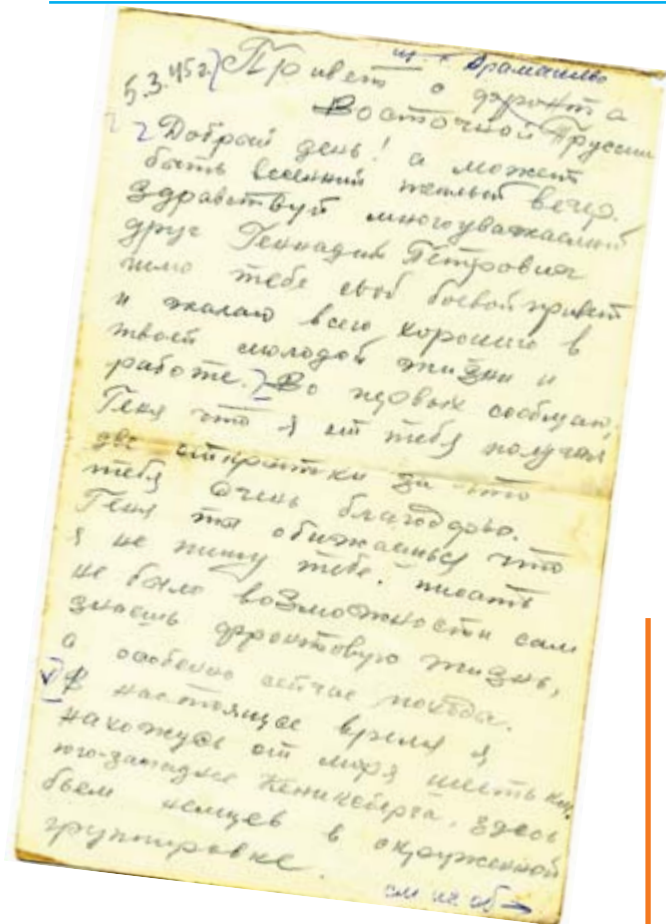 5.3.45г. Привет с фронта
Восточной Пруссии
Добрый день! а может
быть весенний теплый вечер.
Здравствуй многоуважаемый
друг Геннадий Петрович
шлю тебе свой боевой привет
и желаю всего хорошего в
твоей молодой жизни и
работе. Во первых сообщаю,
Геня что я от тебя получил
две открытки за что
тебя очень благодарю.
Геня ты обижаешься что
я не пишу тебе. писать
не было возможности сам
знаешь фронтовую жизнь,
а особенно сейчас
В настоящее время я
нахожусь от моря шесть км.
юго-западнее Кенигсберга. здесь
бьем немцев в окруженной
группировке.
см на об →